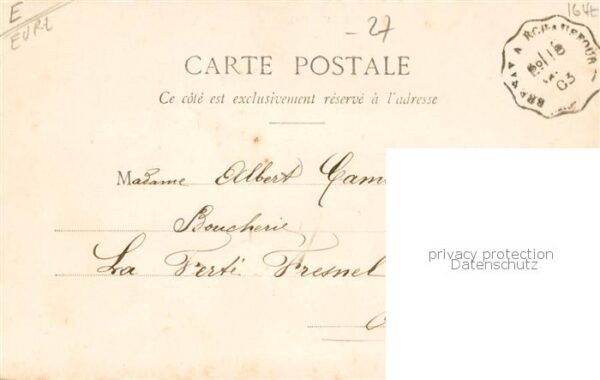 E
EURE
- 27
164E
CARTE POSTALE
Ce côté est exclusivement réservé à l'adresse
Madame Albert
Boucherie
La Ferté Fresnel
privacy protection
Datenschutz
03